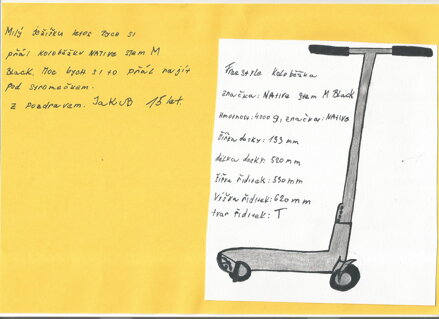 Milý Ježíšku letos bych si
přál koloběžku NATIVE stem M
Black. Moc bych si to přál najít
pod stromečkem.
z pozdravem. JakuB 15 let.
Freestyle koloběžka
značka: NATIVE stem M Black
hmotnost: 4000 g, značka: NATIVE
šířka desky: 133 mm
délka desky: 520 mm
šířka řidítek: 550 mm
Výška řidítek: 620 mm
tvar řidítek: T